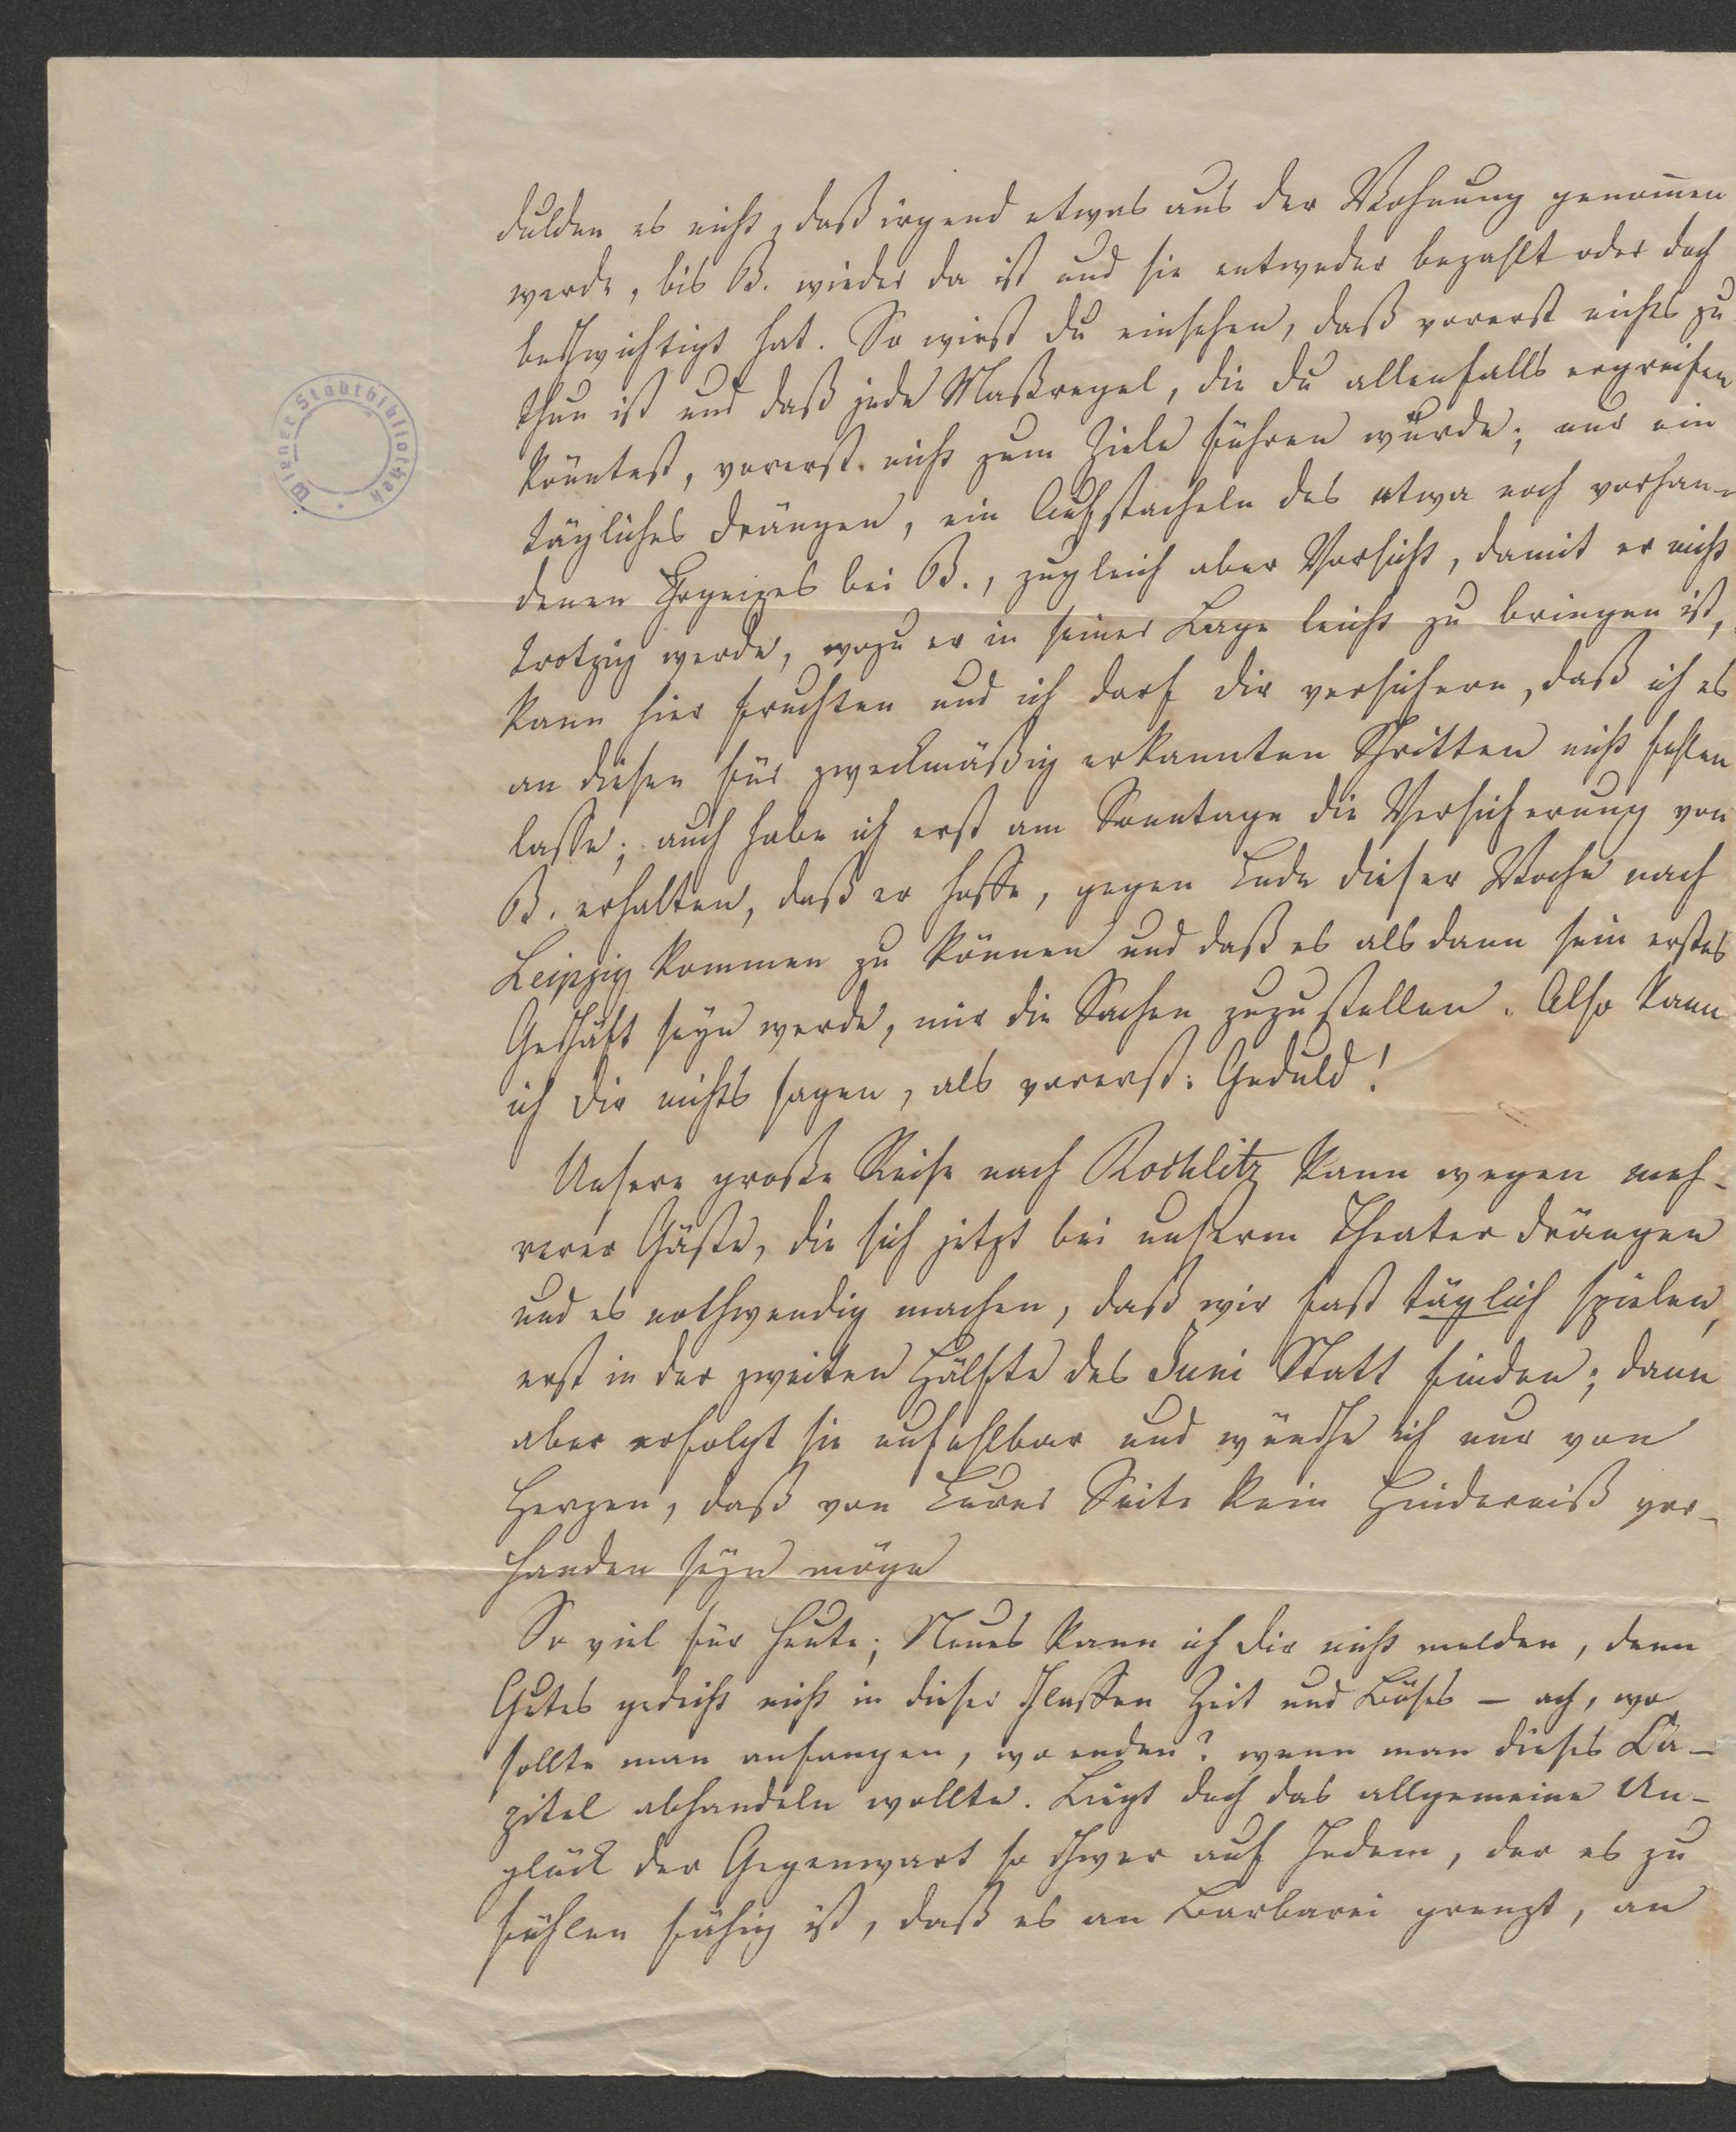 dulden es nicht, daß irgend etwas aus der Wohnung genom̄en
werde, bis B. wieder da ist und sie entweder bezahlt oder doch
beschwichtigt hat. So wirst du einsehen, daß vorerst nichts zu
thun ist und daß jede Maßregel, die du allenfalls ergreifen
könntest, vorerst nicht zum Ziele führen würde; nur ein
tägliches Drängen, ein Aufstacheln des etwa noch vorhan-
denen Ehrgeizes bei B., zugleich aber Vorsicht, damit er nicht
trotzig werde, wozu er in seiner Lage leicht zu bringen ist,
kann hier fruchten und ich darf dir versichern, daß ich es
an diesen für zweckmäßig erkannten Schritten nicht fehlen
lasse; auch habe ich erst am Sonntage die Versicherung von
B. erhalten, daß er hoffe, gegen Ende dieser Woche nach
Leipzig kommen zu können und daß es als dann sein erstes
Geschäft seyn werde, mir die Sachen zuzustellen. Also kann
ich dir nichts sagen, als vorerst: Geduld!
Unsere große Reise nach Rochlitz kann wegen meh-
rerer Gäste, die sich jetzt bei unserm Theater drängen
und es nothwendig machen, daß wir fast täglich spielen,
erst in der zweiten Hälfte des Juni Statt finden; dann
aber erfolgt sie unfehlbar und wünsche ich nur von
Herzen, daß von Eurer Seite kein Hinderniß vor-
handen seyn möge
So viel für heute; Neues kann ich dir nicht melden, denn
Gutes gedeiht nicht in dieser schlaffen Zeit und Böses – ach, wo
sollte man anfangen, wo enden? wenn man dieses Ca-
pitel abhandeln wollte. Liegt doch das allgemeine Un-
glück der Gegenwart so schwer auf Jedem, der es zu
fühlen fähig ist, daß es an Barbarei grenzt, an
Wiener Stadtbibliothek